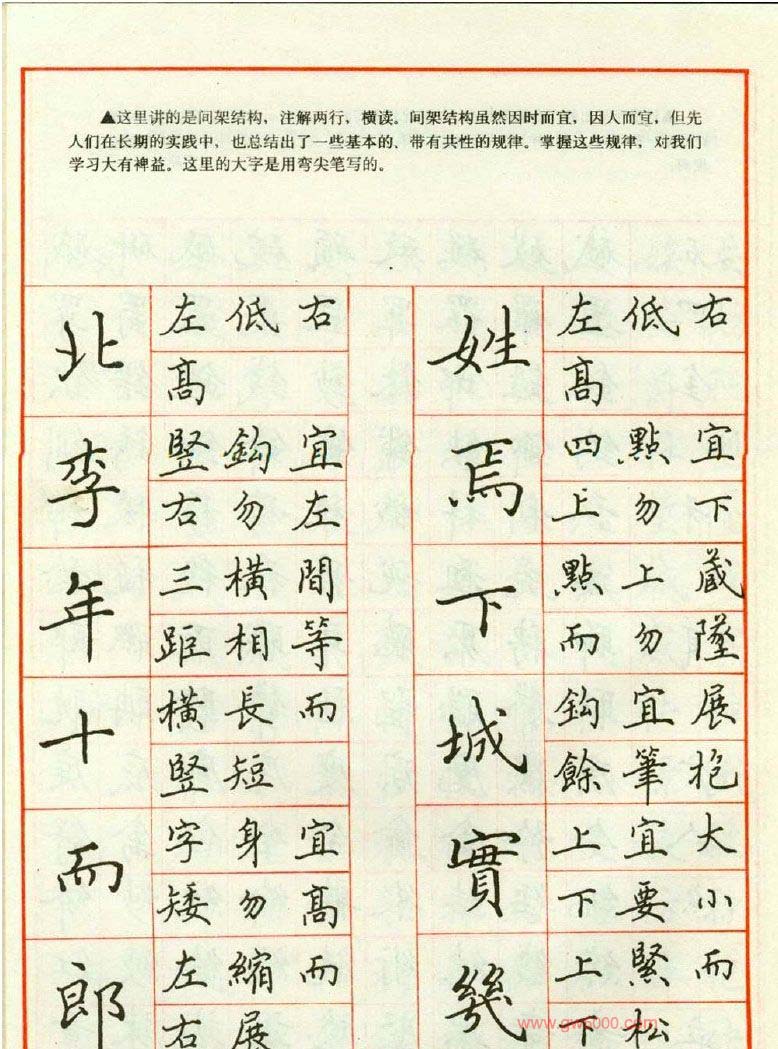 ▲这里讲的是间架结构，注解两行，横读。间架结构虽然因时而宜，因人而宜，但先
人们在长期的实践中，也总结出了一些基本的、带有共性的规律。掌握这些规律，对我们
学习大有裨益。这里的大字是用弯尖笔写的。
北
左低右
髙
李
竪鈎宜
右勿左
年
三橫間
距相等
十
橫長而
竪短
而
字身宜
矮勿髙
郎
左縮而
右展
姓
左低右
髙
焉
四點宜
上勿下
下
點上藏
而勿墜
城
鈎宜展
餘筆抱
實
上宜大
下要小
幾
上緊而
下松
www.gw5000.com